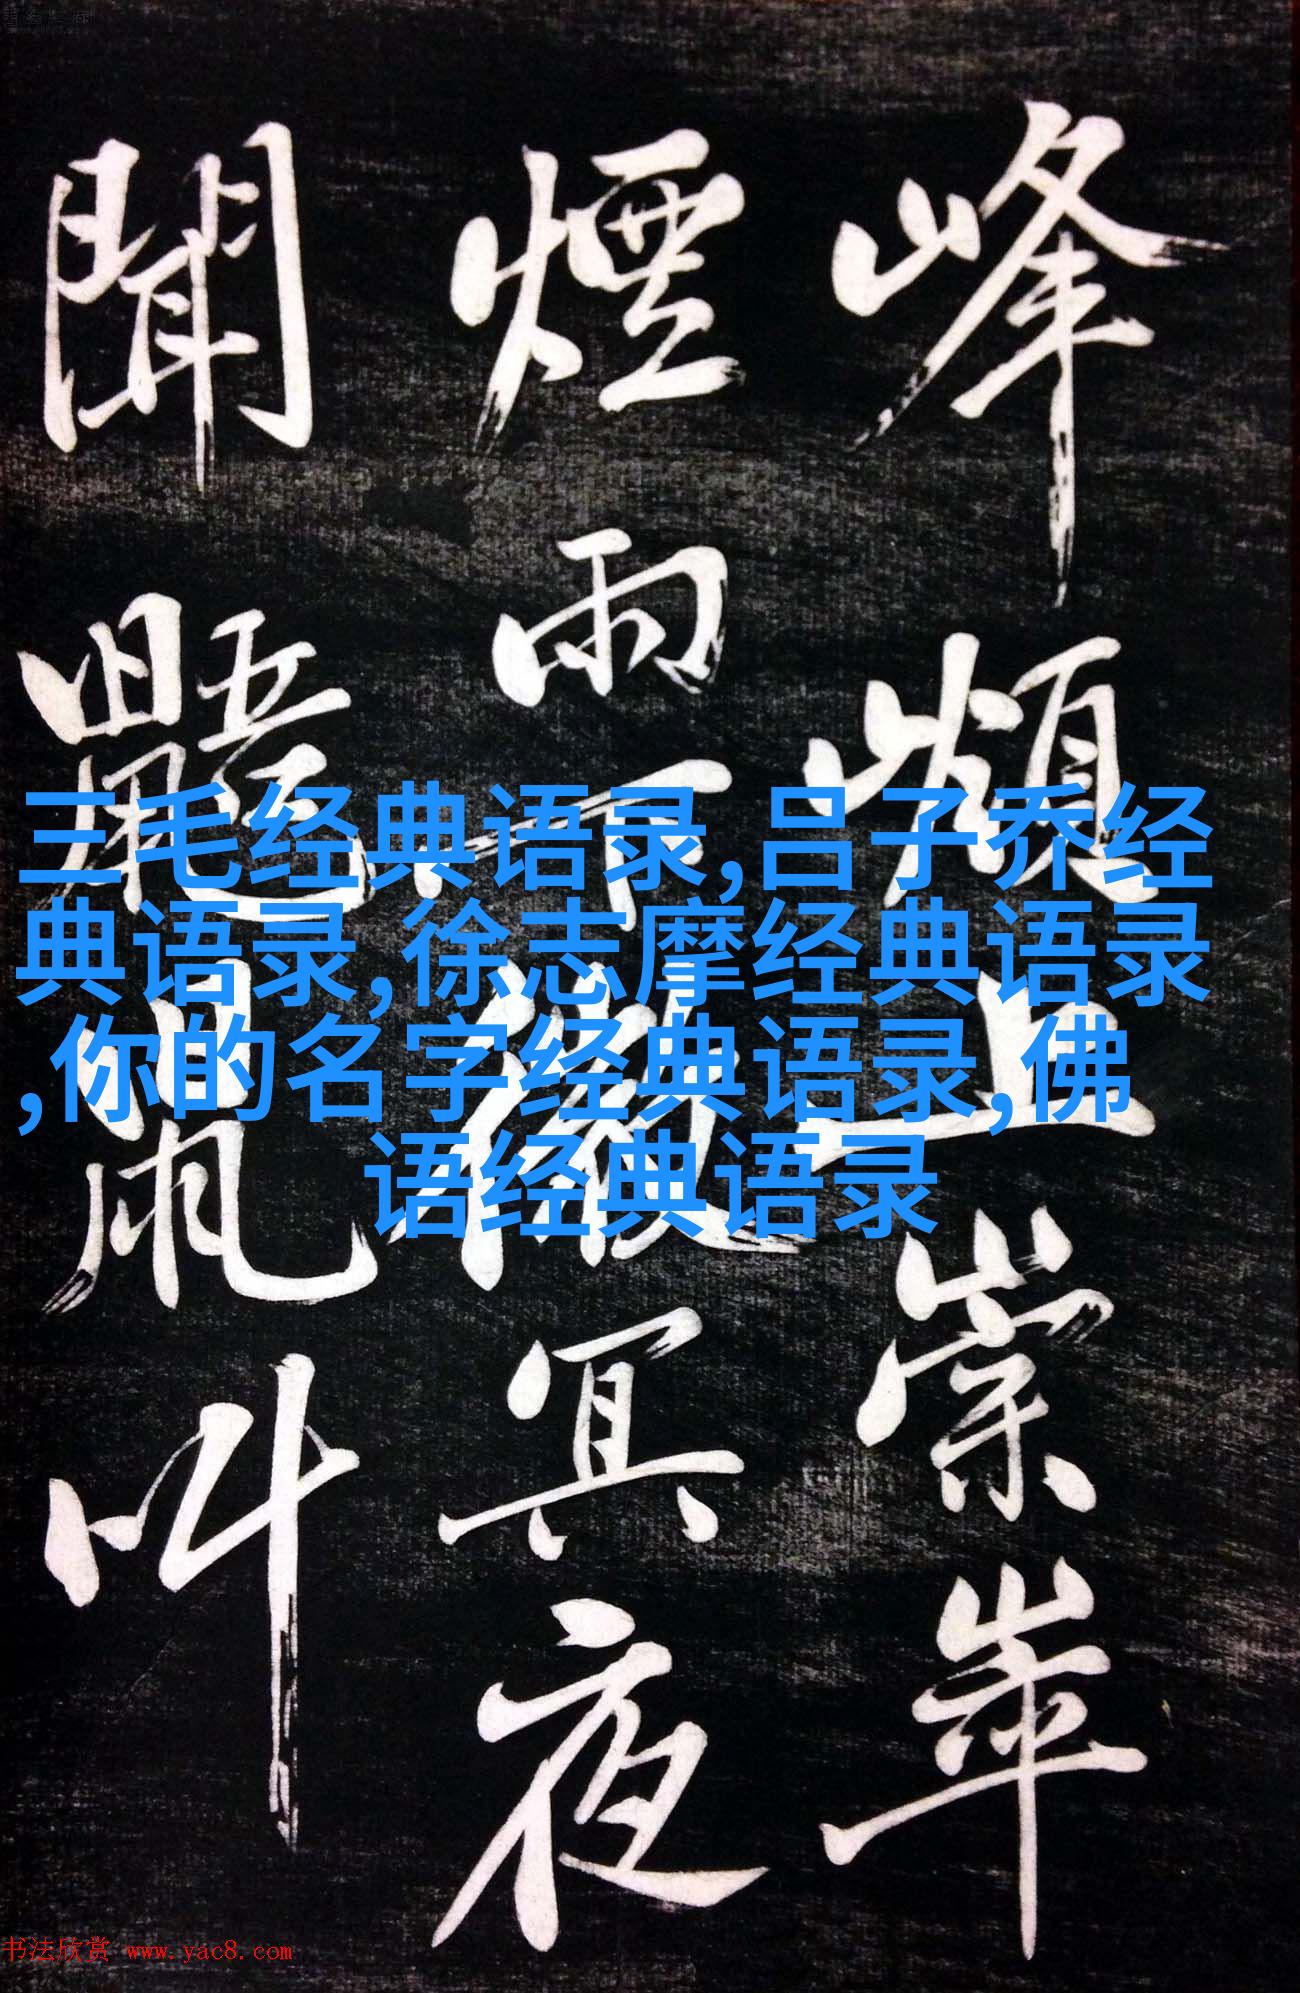 峰上崇崒
煙雨下微冥夜
聞鼯鼠叫
三毛经典语录,吕子乔经
典语录,徐志摩经典语录
,你的名字经典语录,佛
语经典语录
书法欣赏 www.yac8.com